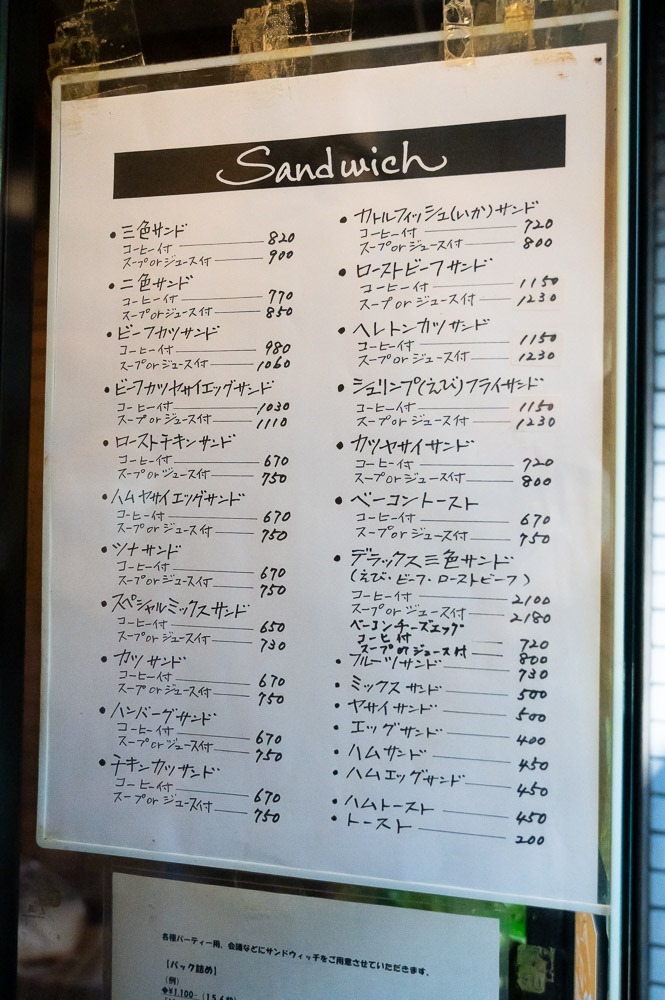 Sandwich
・三色サンド
コーヒー付 820
スープorジュース付 900
・二色サンド
コーヒー付 770
スープorジュース付 850
・ビーフカツサンド
コーヒー付 980
スープorジュース付 1060
・ビーフカツヤサイエッグサンド
コーヒー付 1030
スープorジュース付 1110
・ローストチキンサンド
コーヒー付 670
スープorジュース付 750
・ハムヤサイエッグサンド
コーヒー付 670
スープorジュース付 750
・ツナサンド
コーヒー付 670
スープorジュース付 750
・スペシャルミックスサンド
コーヒー付 650
スープorジュース付 730
・カツサンド
コーヒー付 670
スープorジュース付 750
・ハンバーグサンド
コーヒー付 670
スープorジュース付 750
・チキンカツサンド
コーヒー付 670
スープorジュース付 750
・カトルフィッシュ(いか)サンド
コーヒー付 720
スープorジュース付 800
・ローストビーフサンド
コーヒー付 1150
スープorジュース付 1230
・ヘレトンカツサンド
コーヒー付 1150
スープorジュース付 1230
・シュリンプ(えび)フライサンド
コーヒー付 1150
スープorジュース付 1230
・カツヤサイサンド
コーヒー付 720
スープorジュース付 800
・ベーコントースト
コーヒー付 670
スープorジュース付 750
・デラックス三色サンド
(えび・ビーフ・ローストビーフ)
コーヒー付 2100
スープorジュース付 2180
ベーコンチーズエッグ
コーヒ付 720
スープorジュース付 800
・フルーツサンド 730
・ミックスサンド 500
・ヤサイサンド 500
・エッグサンド 400
・ハムサンド 450
・ハムエッグサンド 450
・ハムトースト 450
・トースト 200
各種パーティー用、会議などにサンドウィッチをご用意させていただきます。
【パック詰め】
(例)
◆¥1,100-